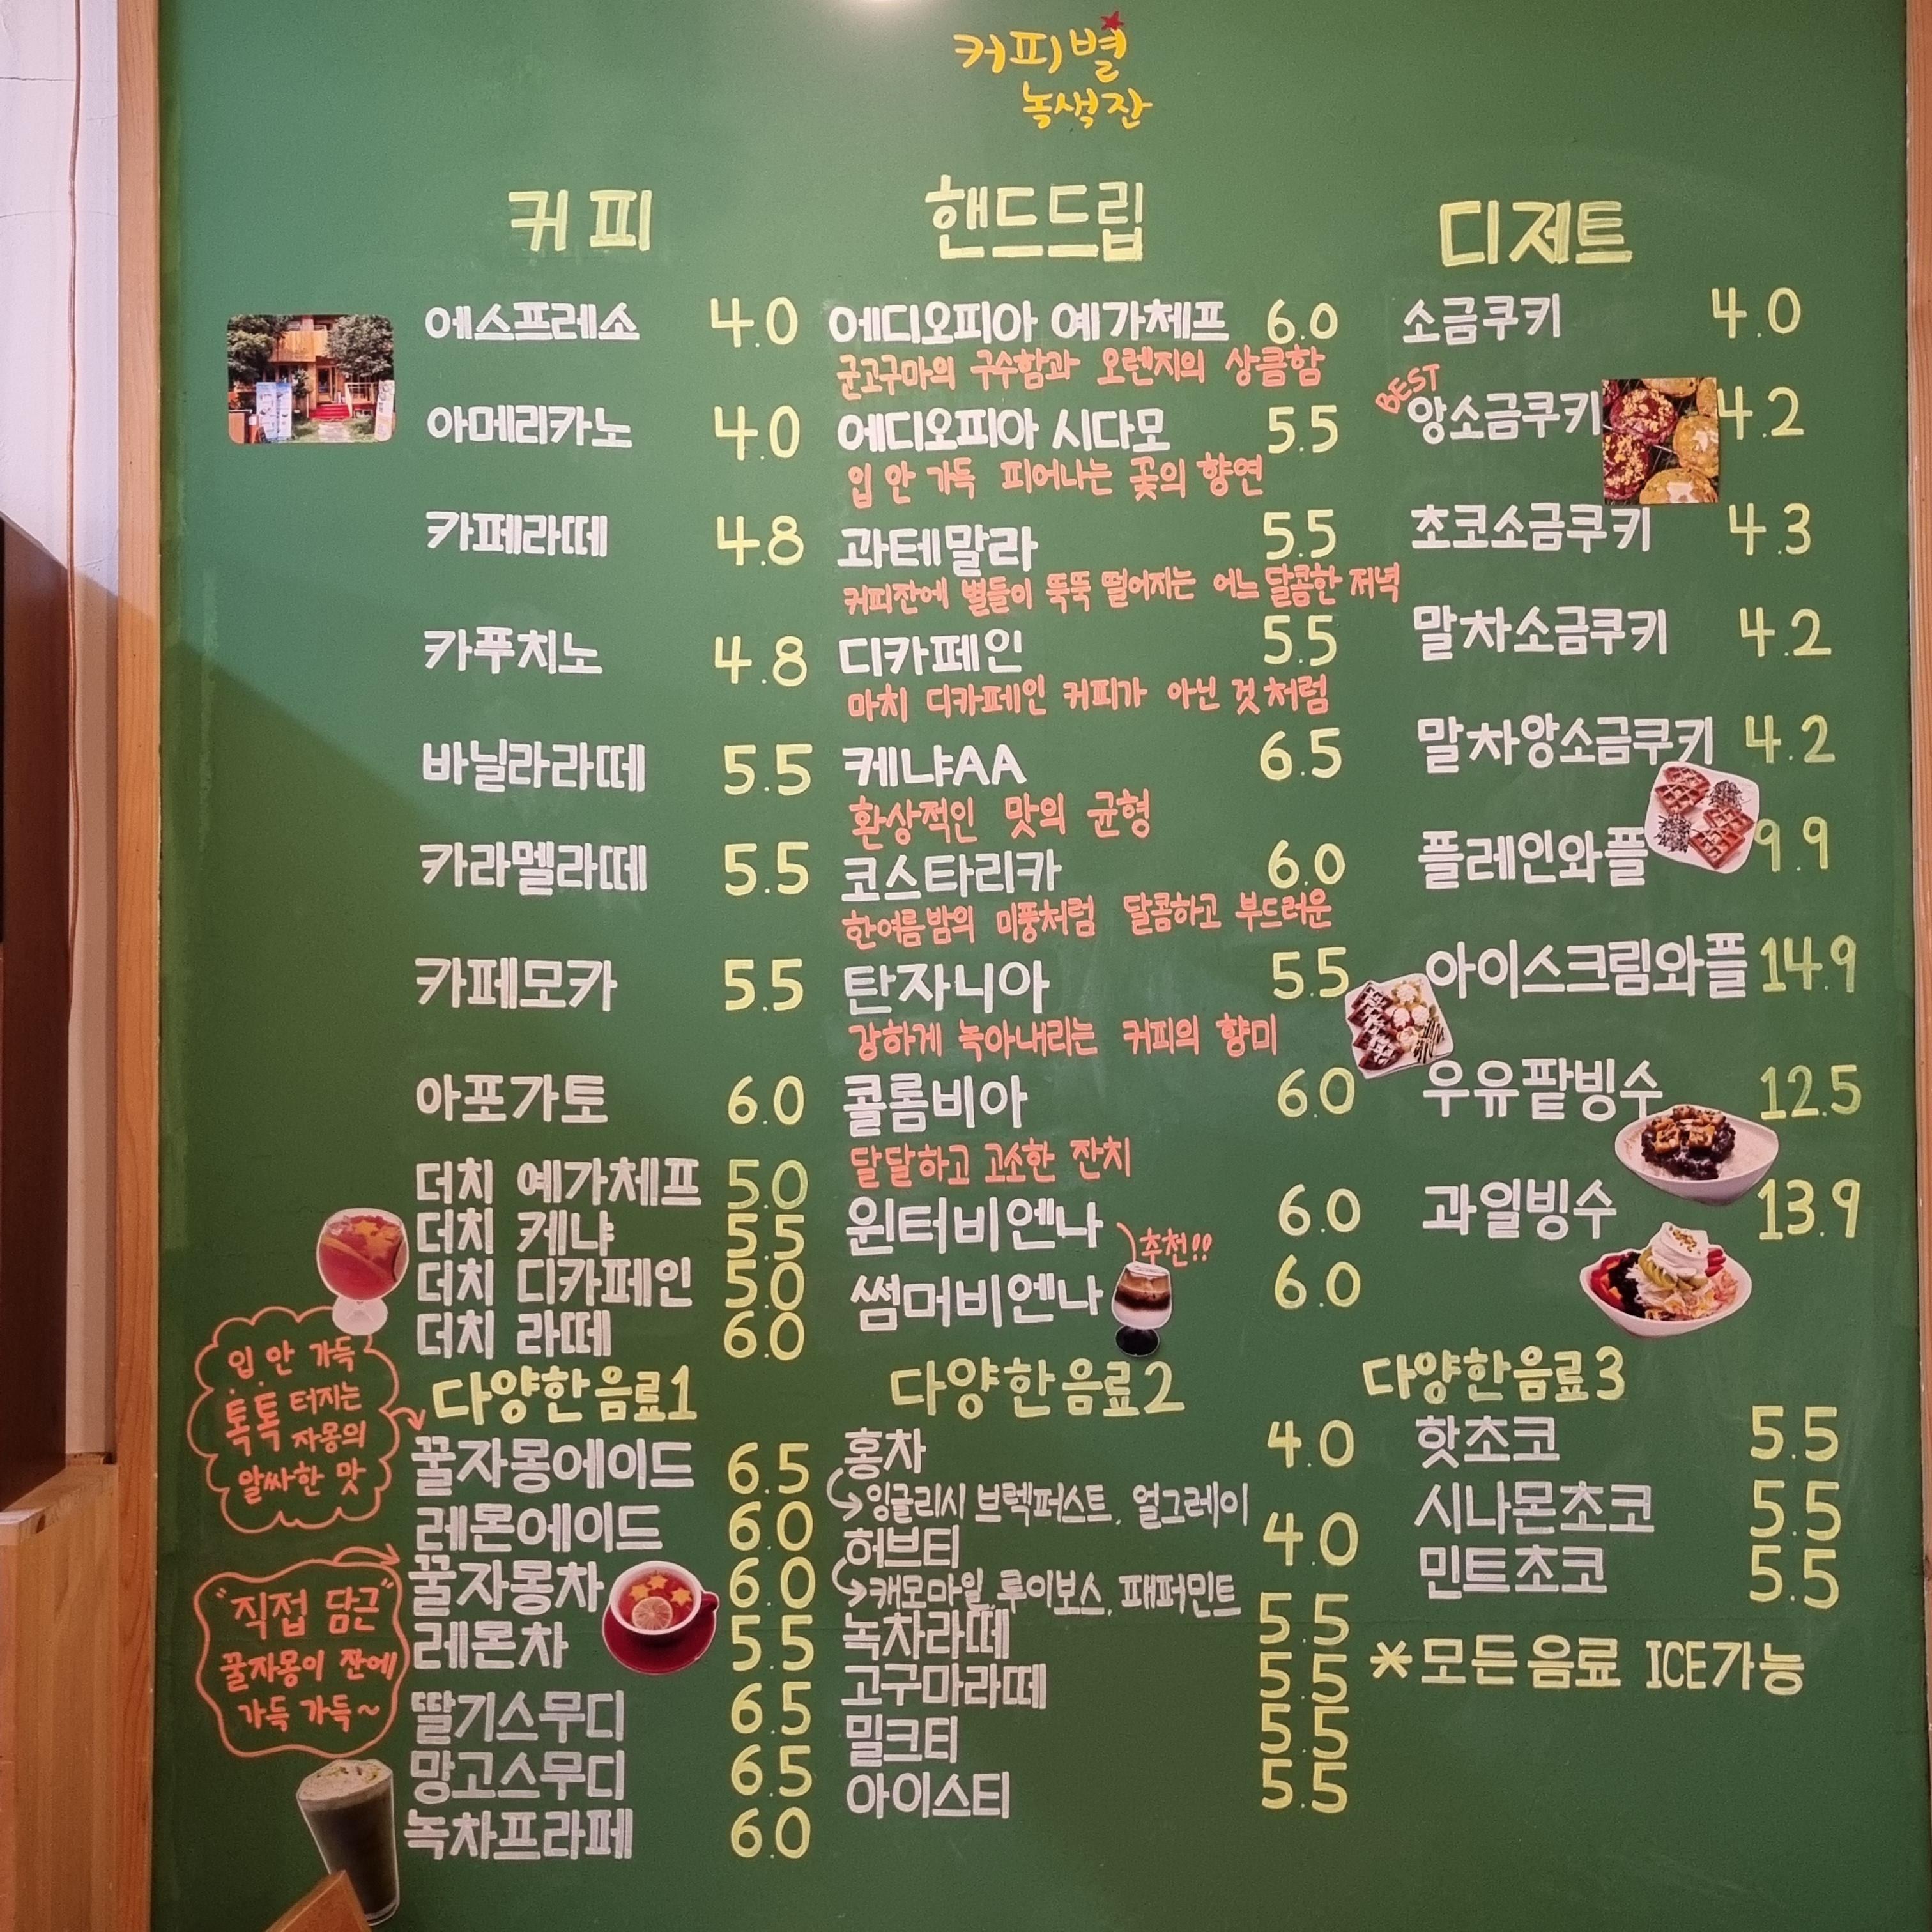 커피별
녹색잔
커피
에스프레소 4.0
아메리카노 4.0
카페라떼 4.8
카푸치노 4.8
바닐라라떼 5.5
카라멜라떼 5.5
카페모카 5.5
아포가토 6.0
더치 예가체프 5.0
더치 케냐 5.5
더치 디카페인 5.0
더치 라떼 6.0
핸드드립
에디오피아 예가체프 6.0
군고구마의 구수함과 오렌지의 상큼함
에디오피아 시다모 5.5
입 안 가득 피어나는 꽃의 향연
과테말라 5.5
커피잔에 별들이 뚝뚝 떨어지는 어느 달콤한 저녁
디카페인 5.5
마치 디카페인 커피가 아닌 것처럼
케냐AA 6.5
환상적인 맛의 균형
코스타리카 6.0
한여름밤의 미풍처럼 달콤하고 부드러운
탄자니아 5.5
강하게 녹아내리는 커피의 향미
콜롬비아 6.0
달달하고 고소한 잔치
윈터비엔나 6.0
추천!!
썸머비엔나 6.0
디저트
소금쿠키 4.0
BEST
앙소금쿠키 4.2
초코소금쿠키 4.3
말차소금쿠키 4.2
말차앙소금쿠키 4.2
플레인와플 9.9
아이스크림와플 14.9
우유팥빙수 12.5
과일빙수 13.9
다양한음료1
입 안 가득
톡톡 터지는
자몽의
알싸한 맛
꿀자몽에이드 6.5
레몬에이드 6.0
꿀자몽차 6.0
"직접 담근"
꿀자몽이 잔에
가득 가득~
레몬차 5.5
딸기스무디 6.5
망고스무디 6.5
녹차프라페 6.0
다양한음료2
홍차 4.0
잉글리시 브렉퍼스트, 얼그레이
허브티 4.0
캐모마일, 루이보스, 패퍼민트
녹차라떼 5.5
고구마라떼 5.5
밀크티 5.5
아이스티 5.5
다양한음료3
핫초코 5.5
시나몬초코 5.5
민트초코 5.5
*모든음료 ICE가능